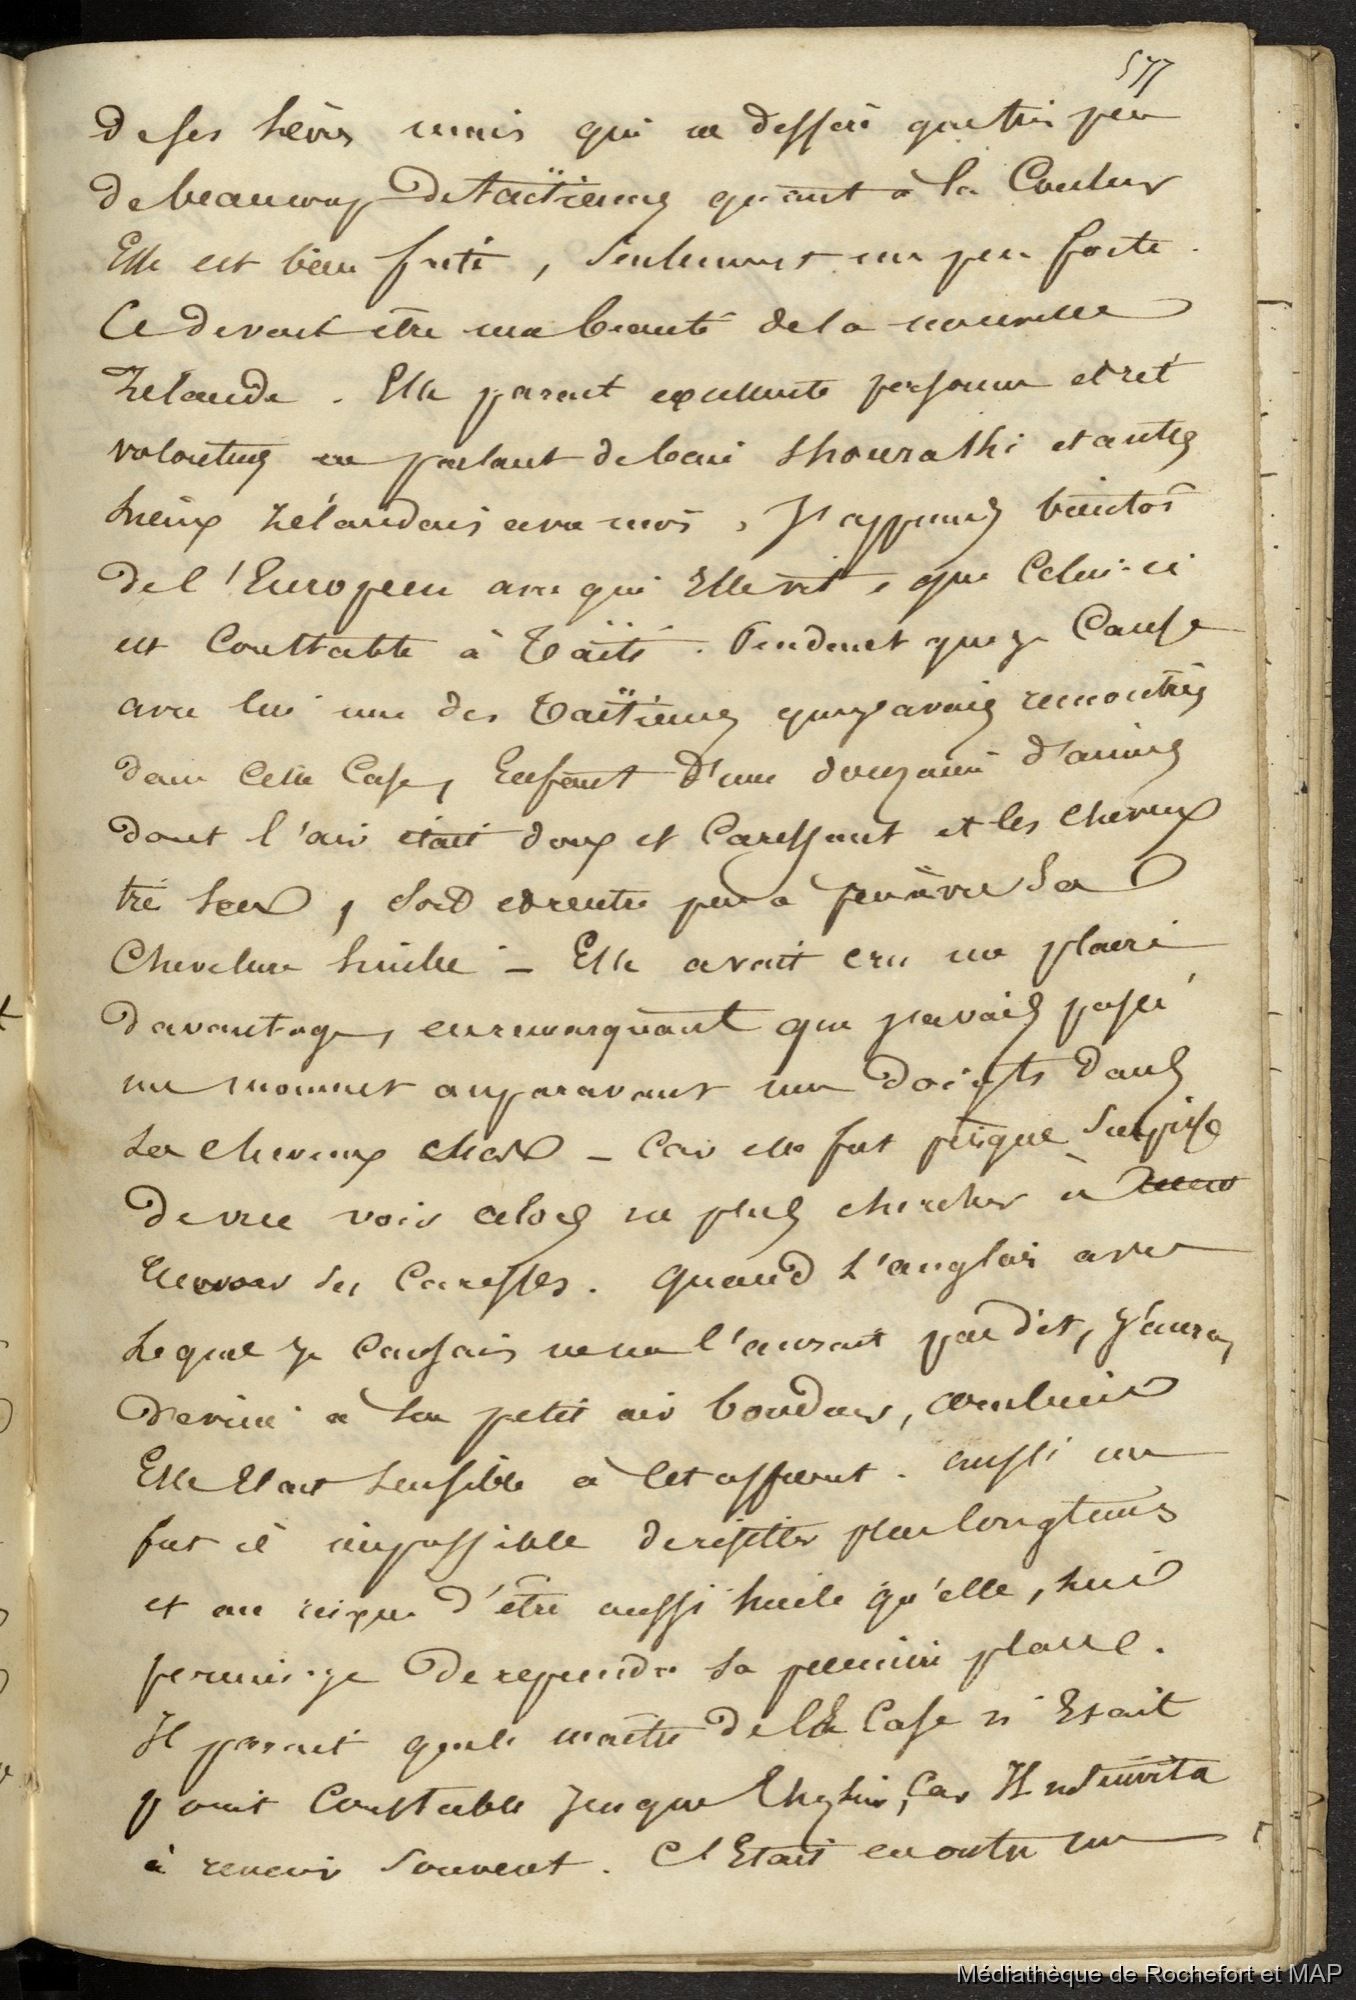 577
de ses lèvres mais qui ne differe que très peu
de beaucoup de taïtiennes quant à la Couleur
Elle est bien faite, seulement un peu forte.
Ce devait être une beauté de la nouvelle
Zélande. Elle parait excellente personne et rit
volontiers en parlant de baie Shourakhi et autres
lieux Zélandais avec moi, J'apprends bientôt
de l'Europeen avec qui Elle vit, que Celui-ci
est Conttable à Taïti. Pendant que je Cause
avec lui une des Taïtiennes que j'avais rencontrées
dans cette Case, Enfant d'une douzaine d'années
dont l'air était doux et Caressant et les cheveux
très secs, sort et rentre peu après avec sa
Chevelure huilée - Elle avait cru me plaire
davantage, en remarquant que j'avais passé
un moment auparavant mes doigts dans
ses cheveux - Car elle fut presque surprise
de me voir alors ne plus chercher à
recevoir ses Caresses. Quand l'anglais avec
lequel je Causais ne me l'aurait pas dit, j'aurais
deviné à son petit air boudeur, combien
Elle Etait sensible à Cet affront. aussi me
fut il impossible de résister plus longtems
et au risque d'être aussi huilé qu'elle, lui
permis-je de reprendre sa premiere place.
Il parait que le maître de la Case n'Etait
point Constable jusque Chez lui, Car Il m'invita
à revenir souvent. C'Etait en outre un
Médiathèque de Rochefort et MAP